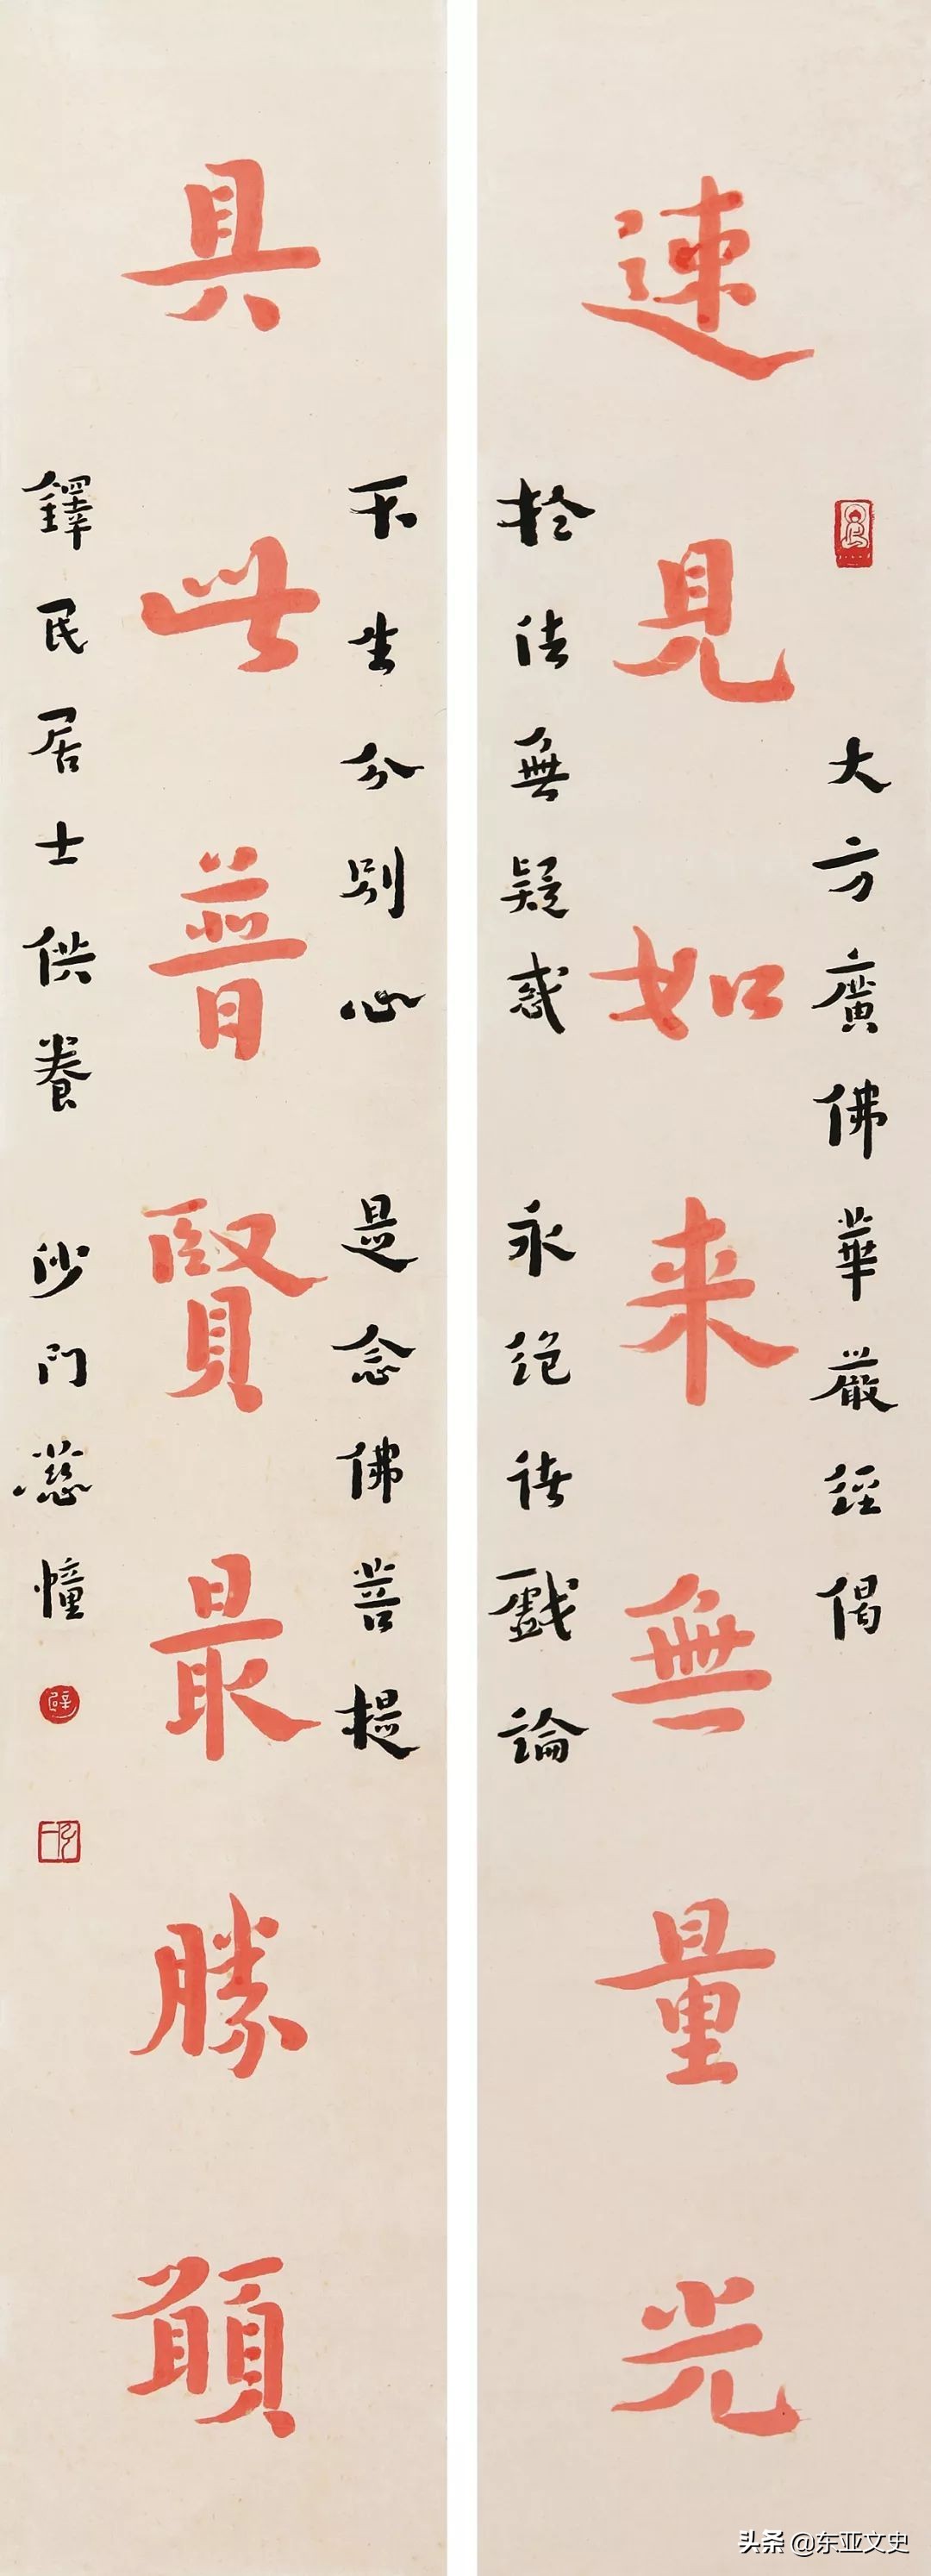 大方廣佛華嚴經偈
速見如来無量光
於法無疑惑 永絕諸戲論
不生分別心 是念佛菩提
具此普賢最勝願
鐸民居士供養 沙門慈幢
头条 @东亚文史